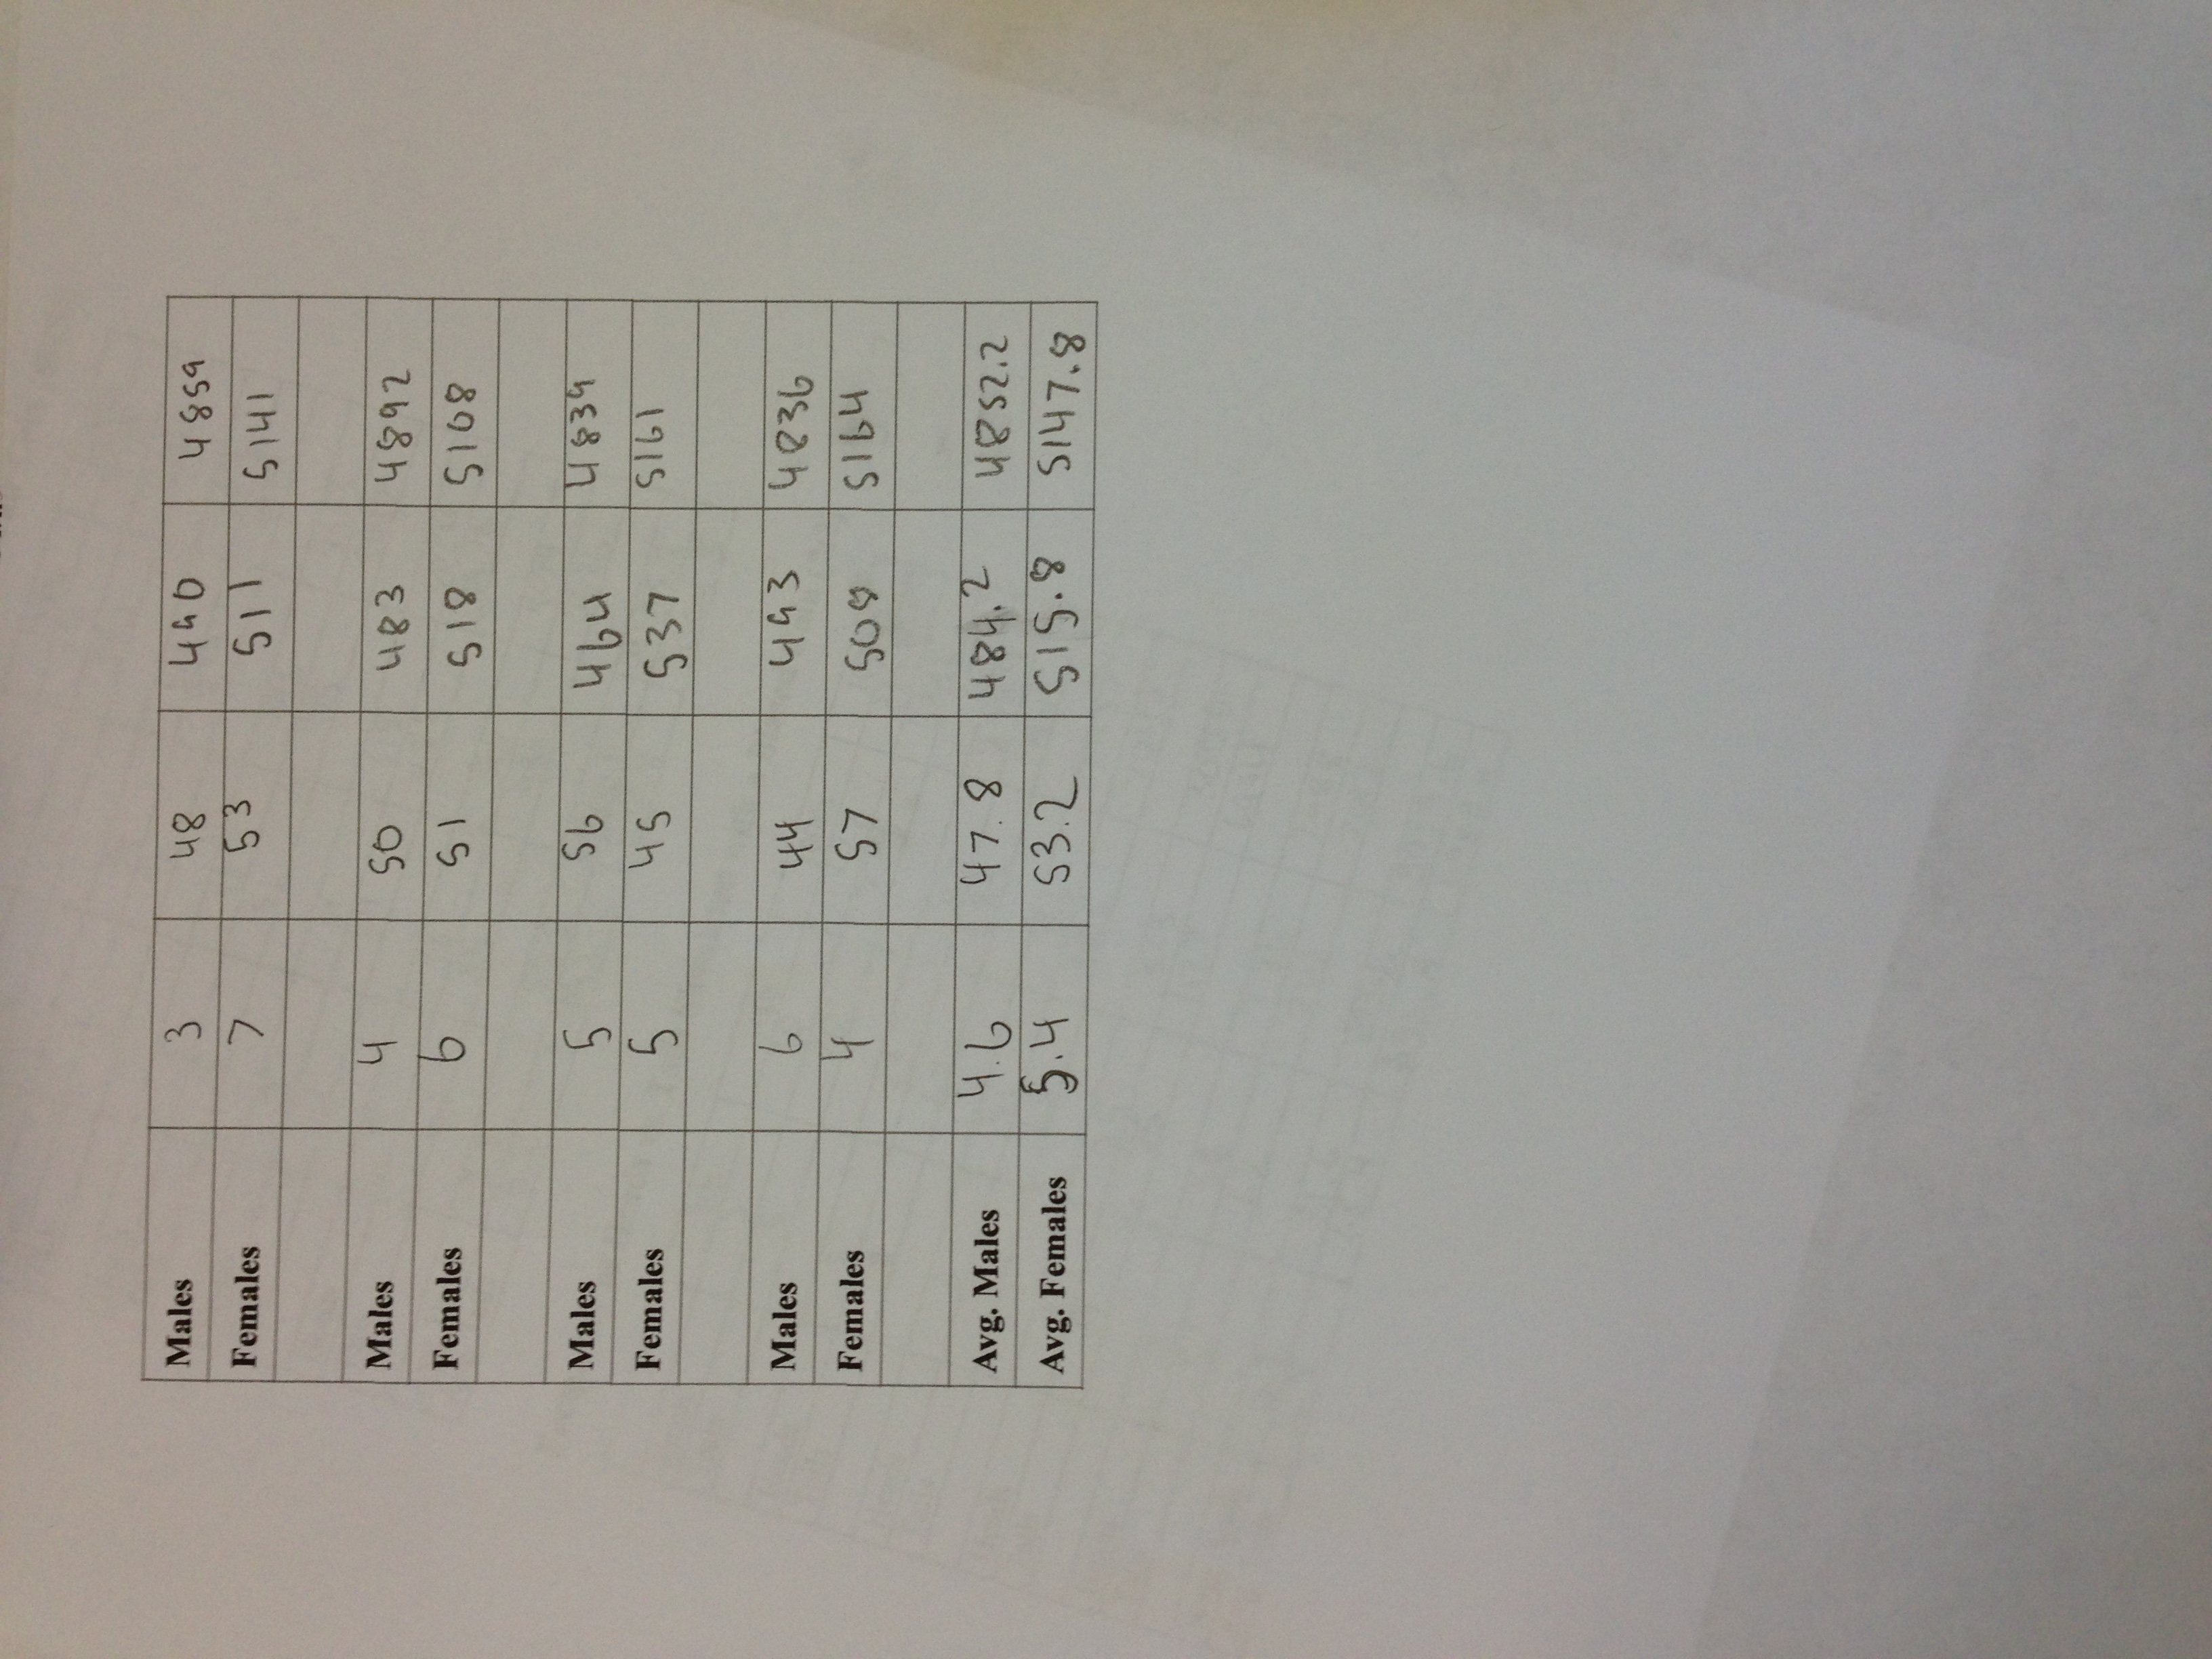 Males 3 48 490 4859
Females 7 53 511 5141
Males 4 50 483 4892
Females 6 51 518 5108
Males 5 56 464 4839
Females 5 45 537 5161
Males 6 44 493 4836
Females 4 57 508 5164
Avg. Males 4.6 47.8 484.2 4852.2
Avg. Females 5.4 53.2 515.8 5147.8